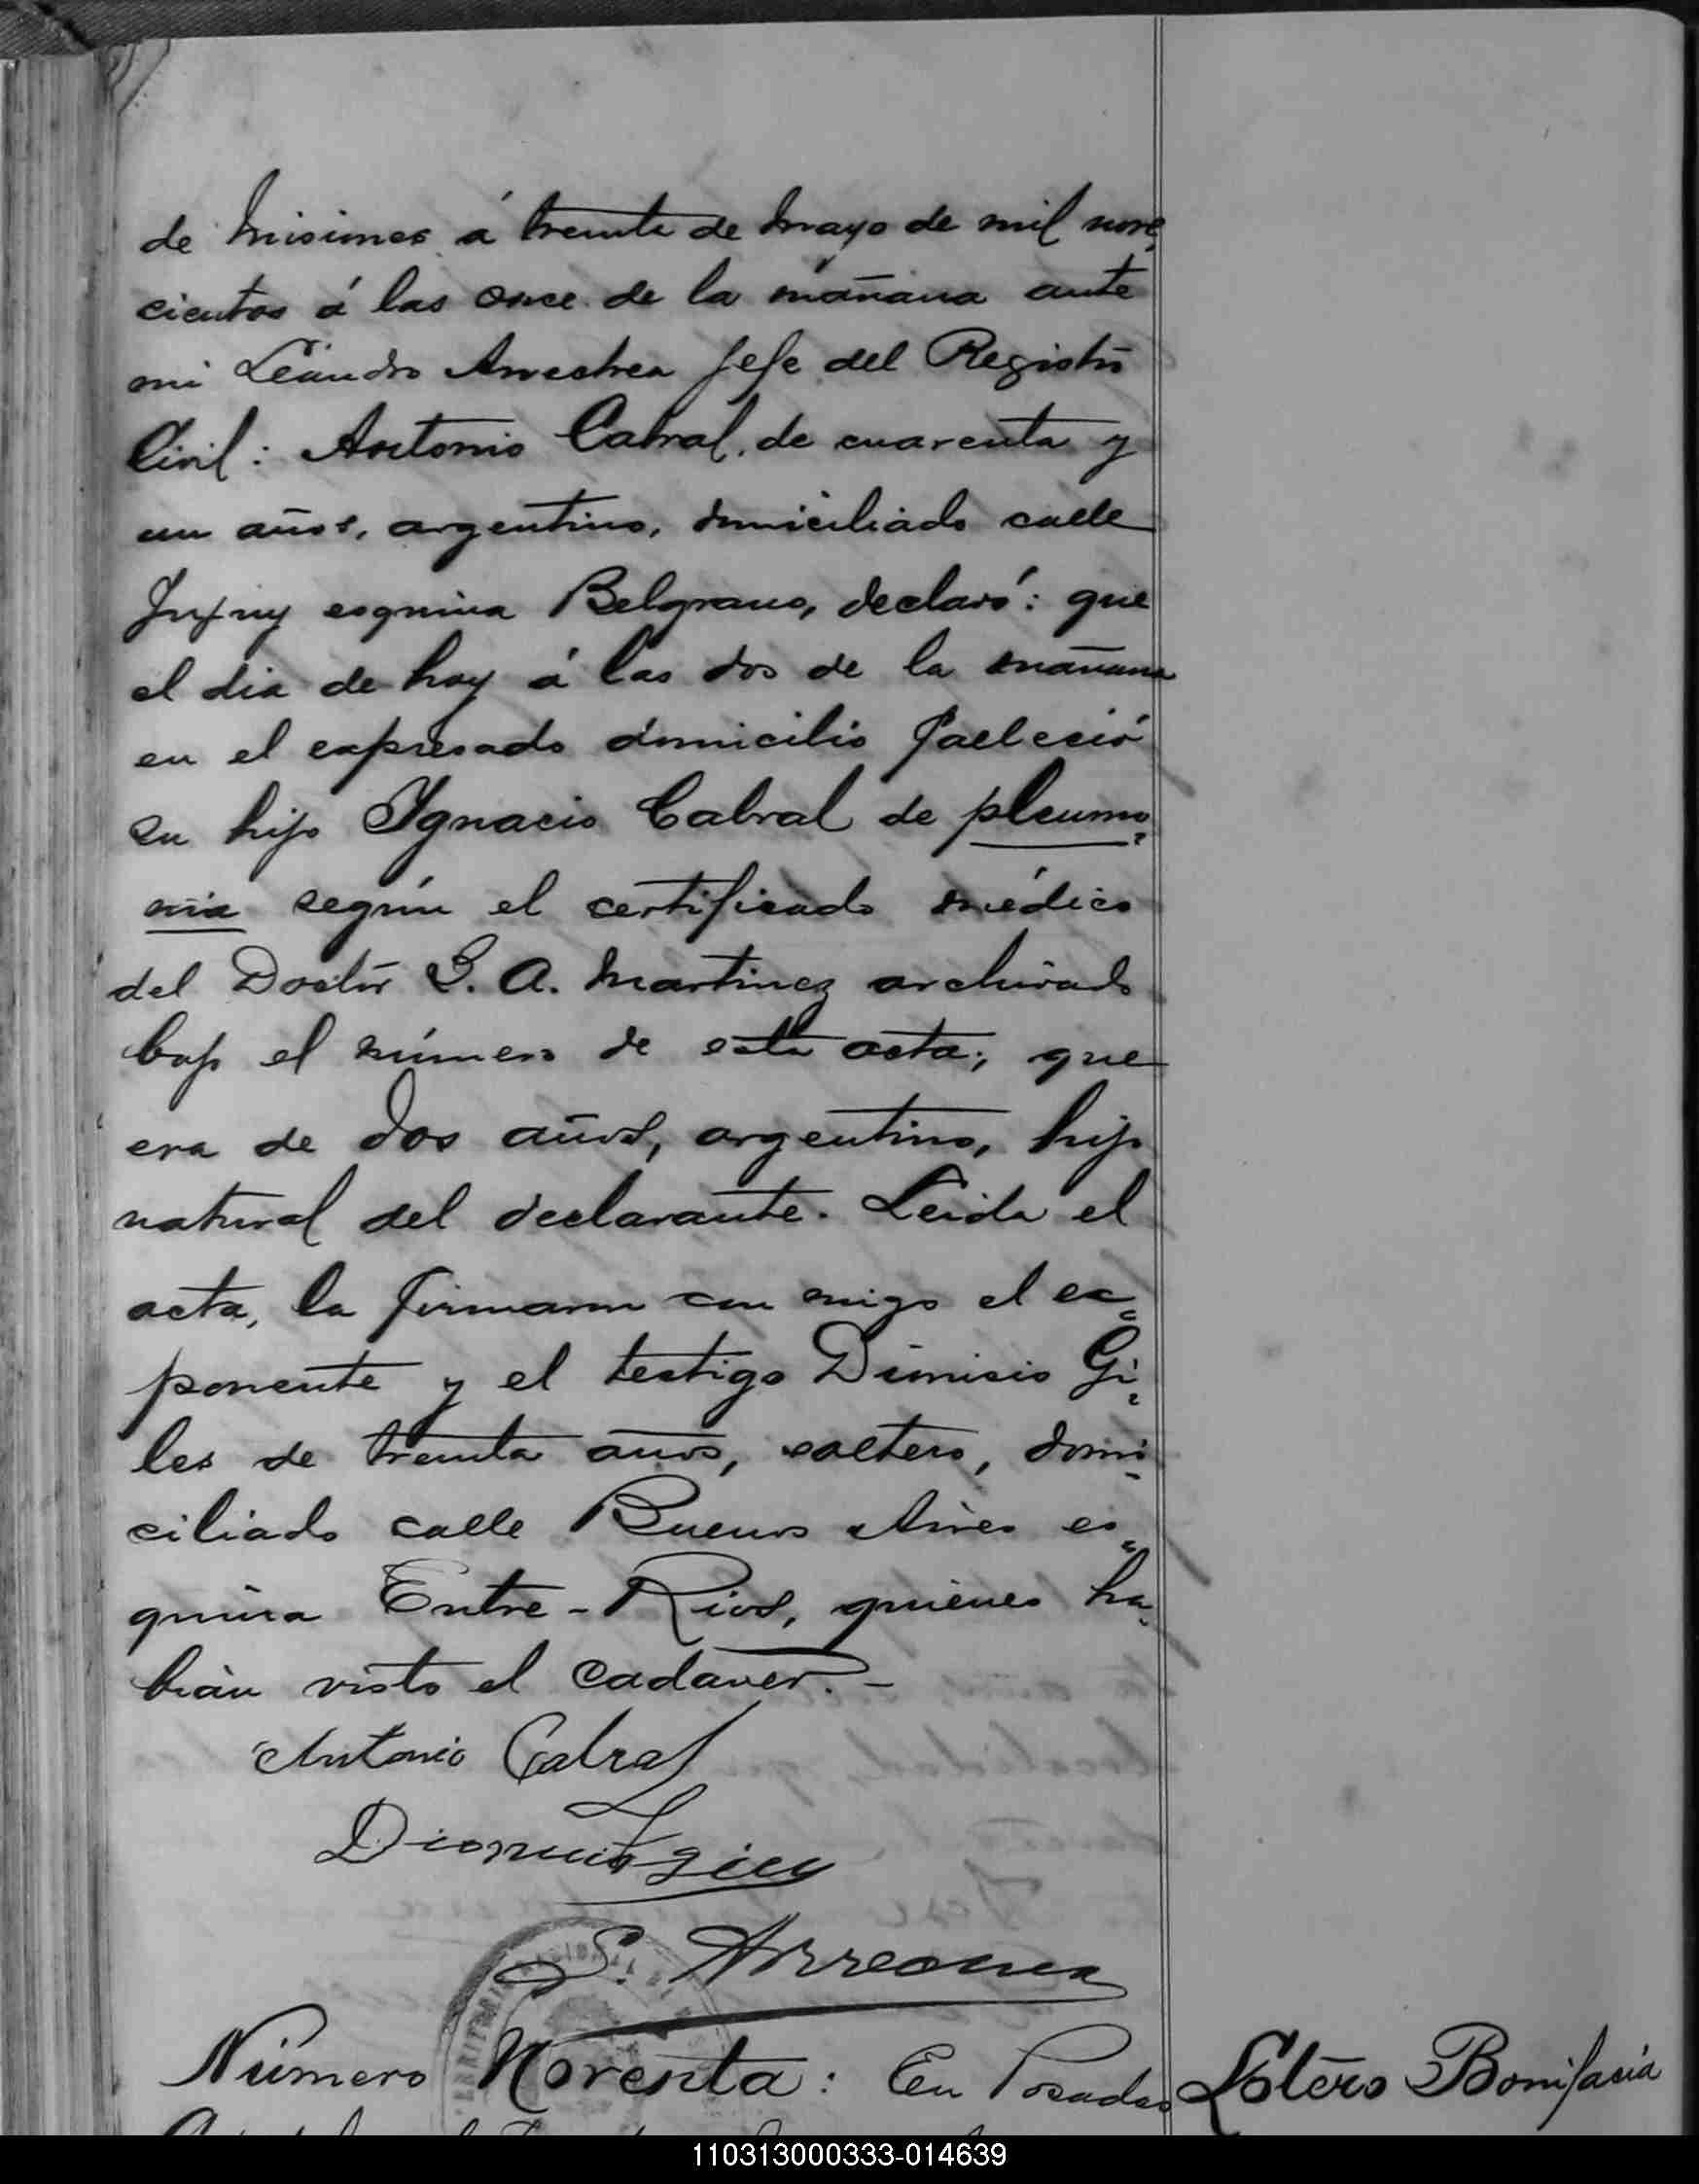 de Misiones á treinta de Mayo de mil nove-
cientos á las once de la mañana ante
mi Leandro Arrechea Jefe del Registro
Civil: Antonio Cabral, de cuarenta y
un años, argentino, domiciliado calle
Jujuy esquina Belgrano, declaró: que
el dia de hoy á las dos de la mañana
en el expresado domicilio falleció
su hijo Ygnacio Cabral de pleumo-
nia según el certificado médico
del Doctor S. A. Martinez archivado
bajo el número de esta acta; que
era de dos años, argentino, hijo
natural del declarante. Leida el
acta, la firmaron con migo el ex-
ponente y el testigo Dionisio Gi-
les de treinta años, soltero, domi-
ciliado calle Buenos Aires es-
quina Entre-Rios, quienes ha-
bian visto el cadaver.-
Antonio Cabral
Dionisio Giles
L. Arrechea
Número Noventa: En Posadas
Sotero Bonifacia
110313000333-014639